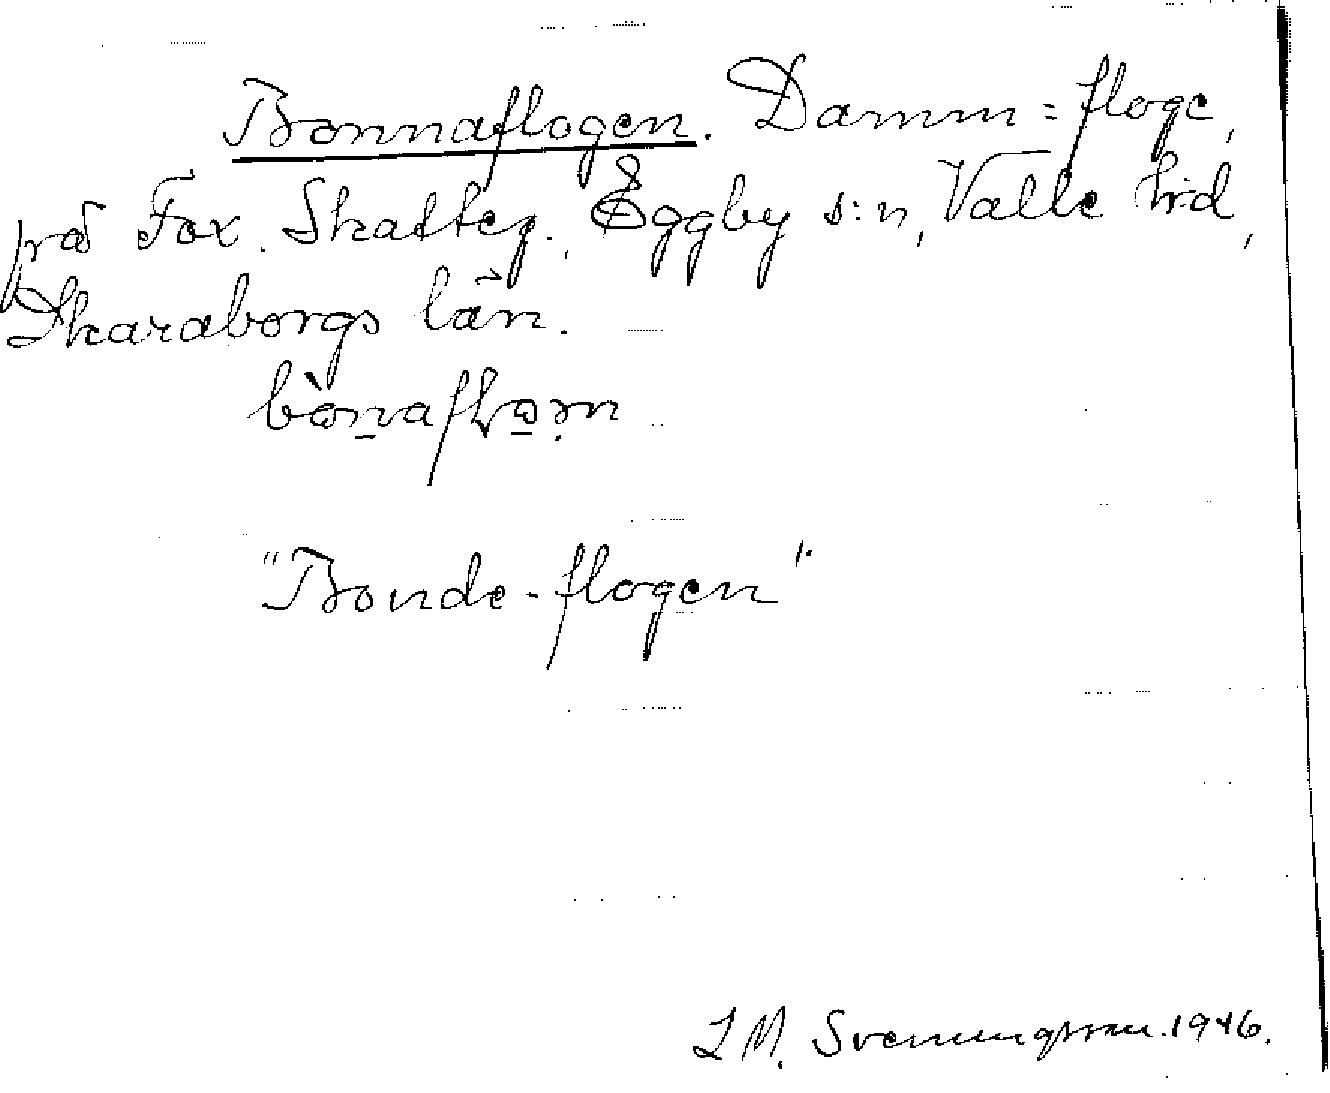 Bonnaflogen. Damm=floge,
på Fox. Skatteg., Eggby s:n, Valle hrd,
Skaraborgs län.
"Bonde-flogen"
L M. Svenungsson. 1946.